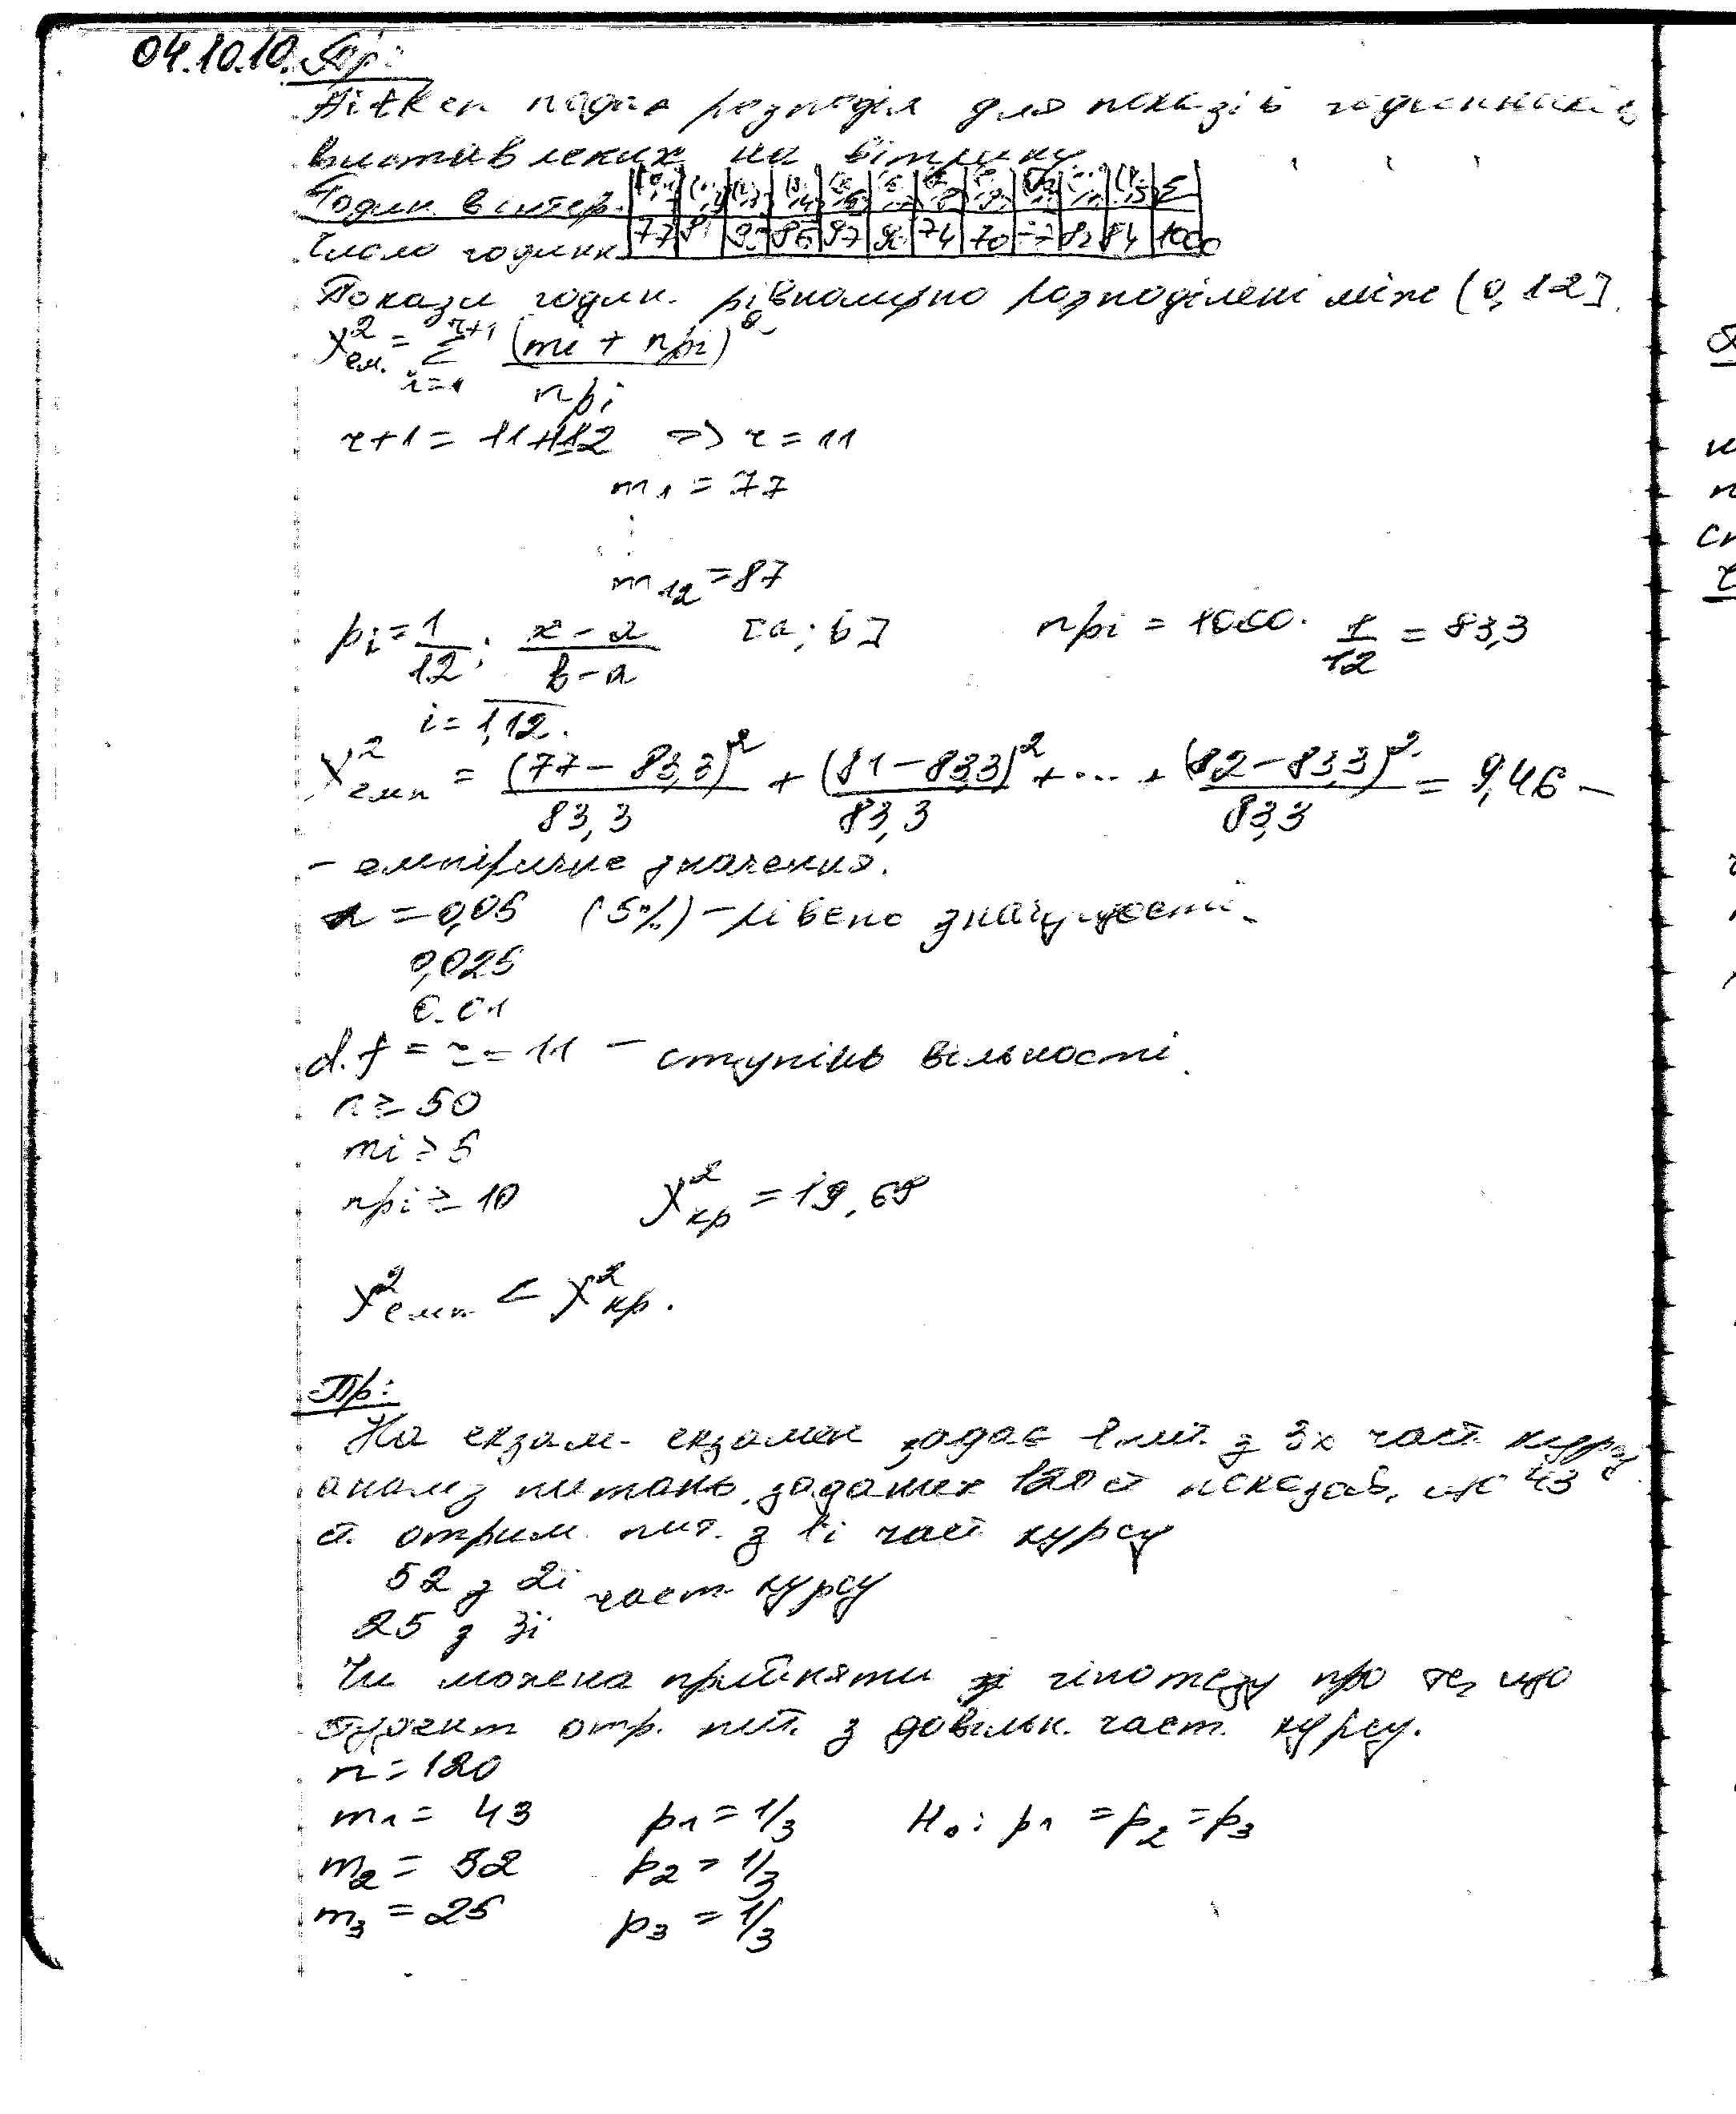 04.10.10. Пр:
Aitken подає розподіл для показів годинників
виставлених на вітрину
Годин. в інтер. Σ
Число годинн. 77 81 85 97 74 70 82 84 1000
Покази годин. рівномірно розподілені між (0, 12].
χ²ем. = Σ r+1 i=1 (mi + npi)² / npi
r+1 = 11+12 => r = 11
m₁ = 77
⋮
m₁₂ = 87
pi = 1/12; x-a / b-a [a; b] npi = 1000 · 1/12 = 83,3
i = 1,12.
χ²емп = (77-83,3)²/83,3 + (81-83,3)²/83,3 + ... + (82-83,3)²/83,3 = 9,46 -
- емпіричне значення.
α = 0,05 (5%) - рівень значущості.
0,025
0.01
d.f = r = 11 - ступінь вільності.
n ≥ 50
mi ≥ 5
npi ≥ 10 χ²кр = 19,69
χ²емп < χ²кр.
Пр:
На екзам. екзамен задає 1 пит. з 3х част. курсу
аналіз питань, заданих 120 ст показав, що 43
ст. отрим. пит. з 1ї част курсу
52 з 2ї част. курсу
25 з 3ї
Чи можна прийняти гіпотезу про те, що
студент отр. пит. з довільн. част. курсу.
n = 120
m₁ = 43 p₁ = 1/3 H₀: p₁ = p₂ = p₃
m₂ = 52 p₂ = 1/3
m₃ = 25 p₃ = 1/3